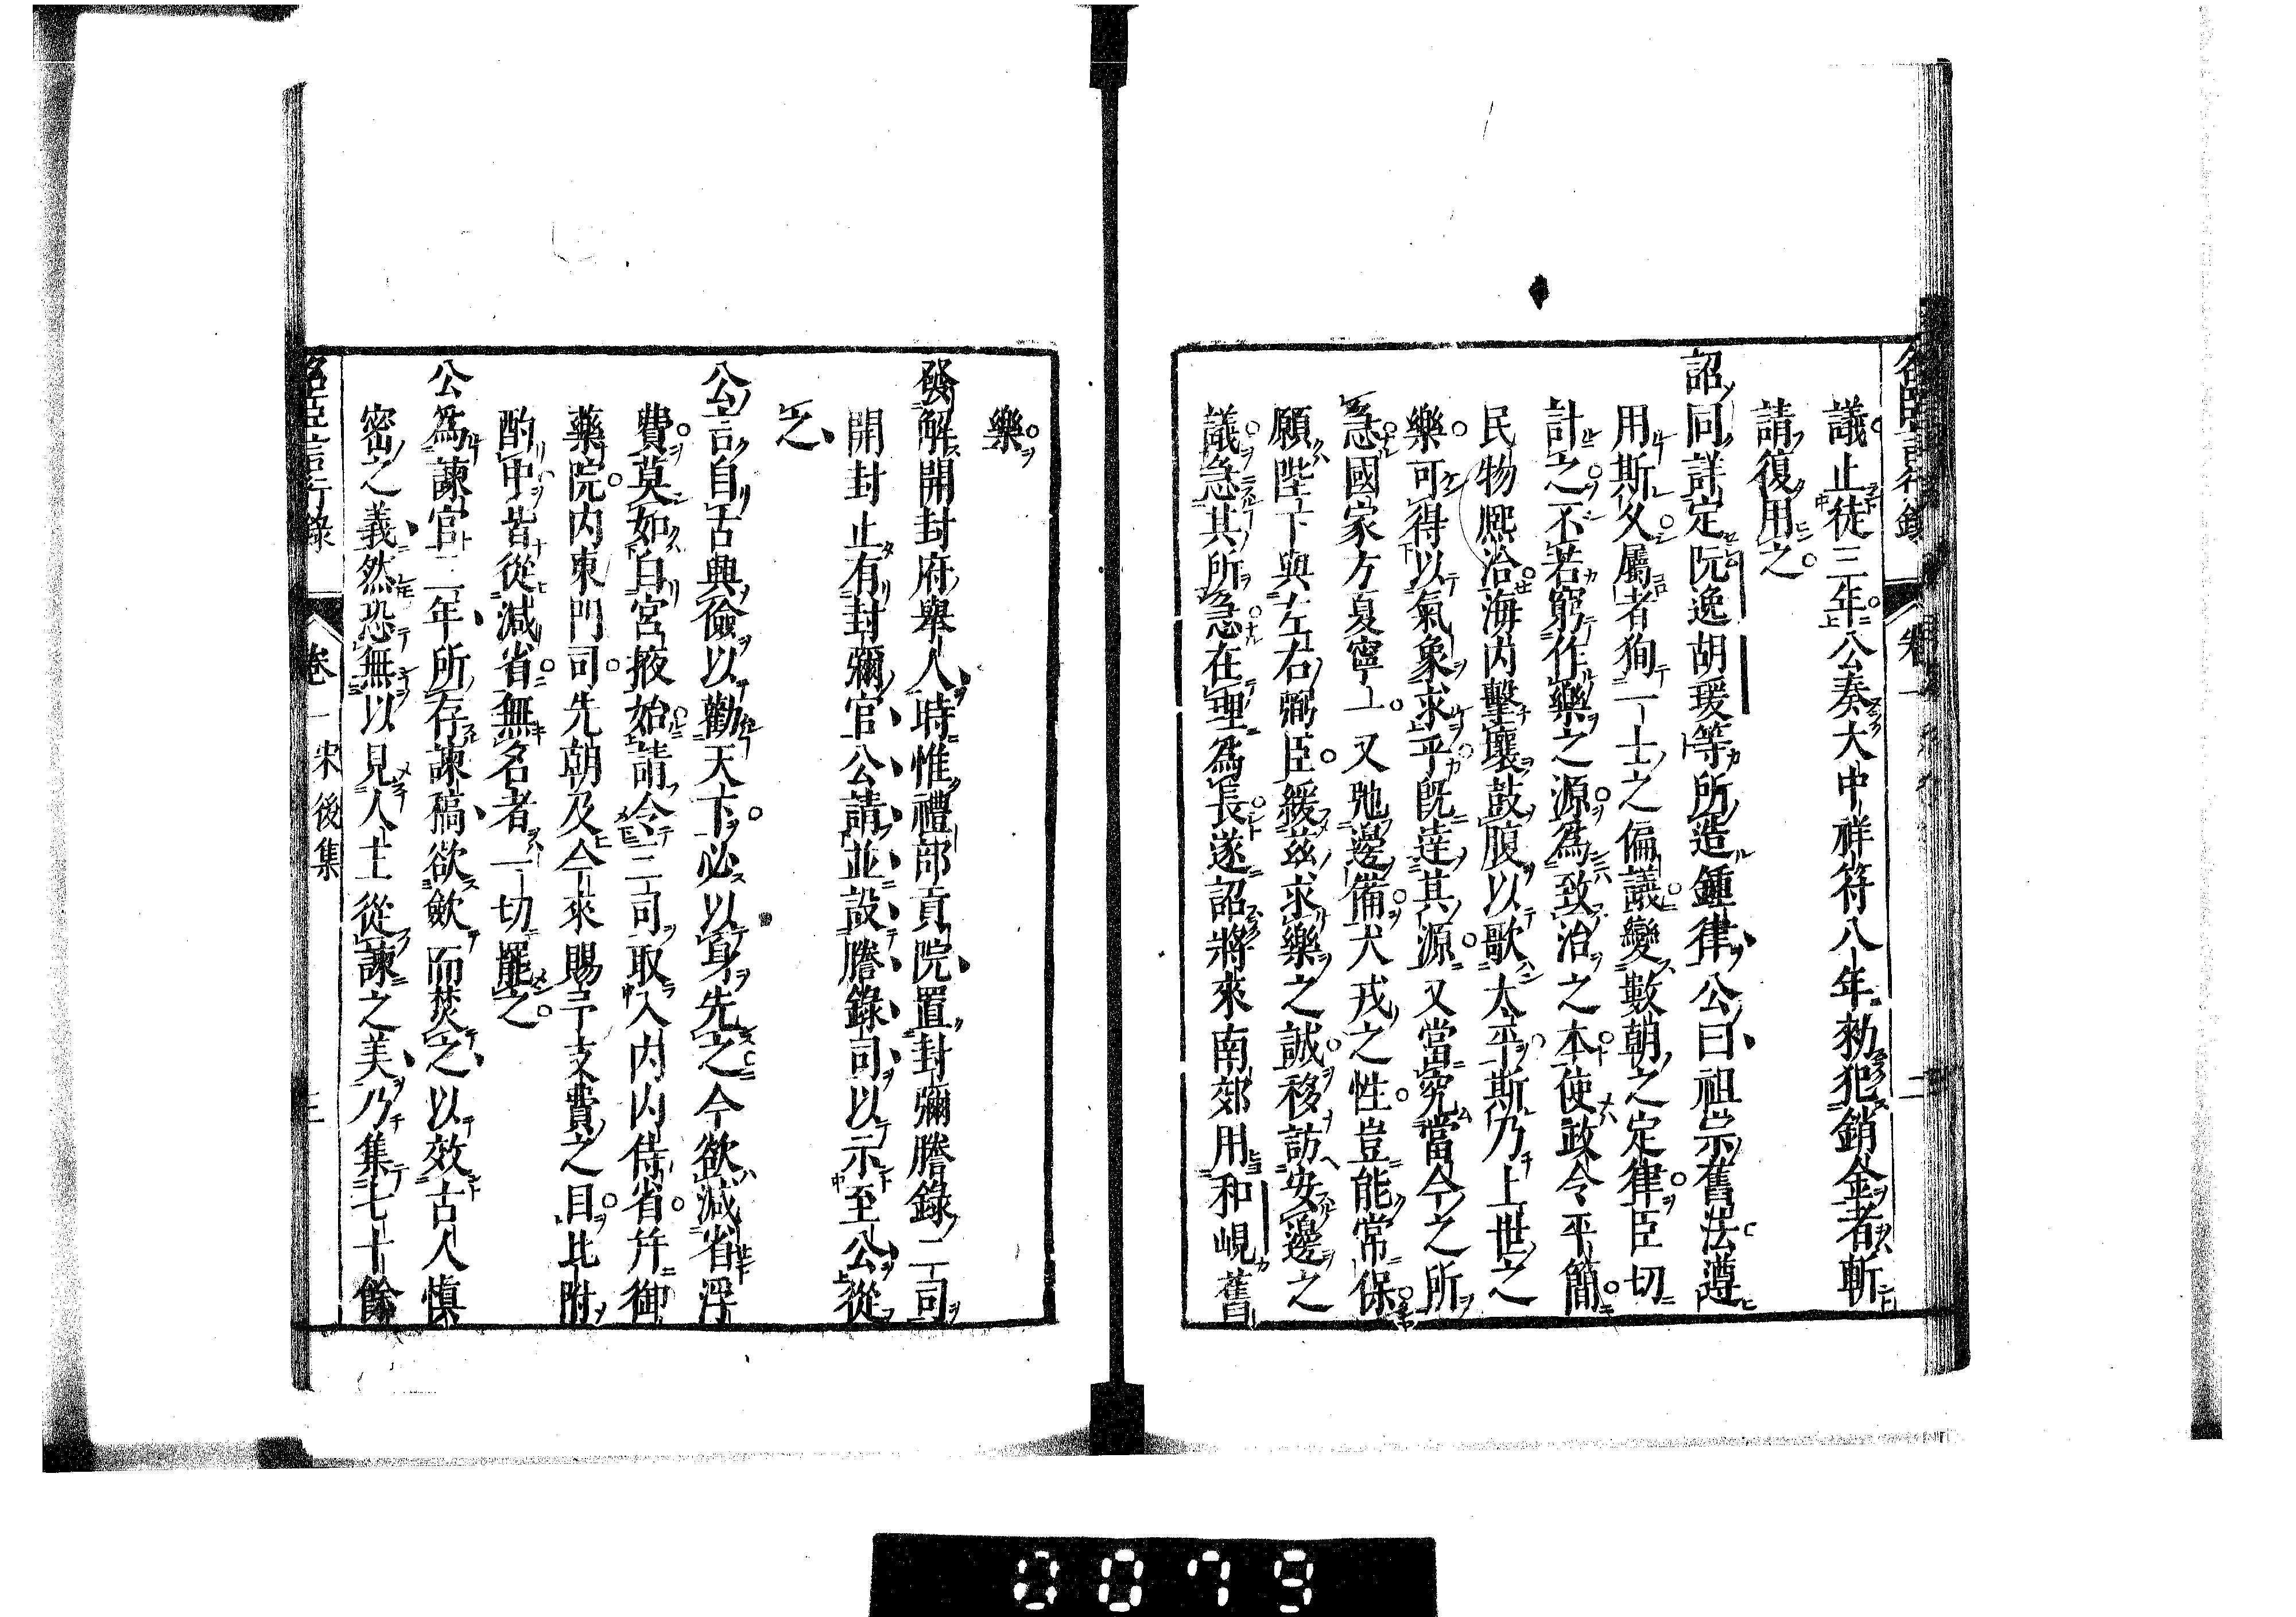 議止徒三年公奏大中祥符八年勑犯銷金者斬
請復用之
詔同詳定阮逸胡瑗等所造鍾律公曰祖宗舊法遵
用斯久屬者狥一士之偏議變數朝之定律臣切
計之不若窮作樂之源為致治之本使政令平簡
民物熈洽海内擊壤鼓腹以歌太平斯乃上世之
樂可得以氣象求乎既達其源又當究當今之所
急國家方夏寧一又弛邊備犬戎之性豈能常保
願陛下與左右弼臣緩茲求樂之誠移訪安邊之
議急其所急在理為長遂詔將來南郊用和峴舊
樂
發解開封府舉人時惟禮部貢院置封彌謄錄二司
開封止有封彌官公請並設謄錄司以示至公從
之
公言自古典儉以勸天下必以身先之今欲減省浮
費莫如自宮掖始請令三司取入内内侍省并御
藥院内東門司先朝及今來賜予支費之目比附
酌中皆從減省無名者一切罷之
公為諫官三年所存諫稿欲斂而焚之以效古人慎
密之義然恐無以見人主從諫之美乃集七十餘
名臣言行錄 卷一 宋後集 三
0079